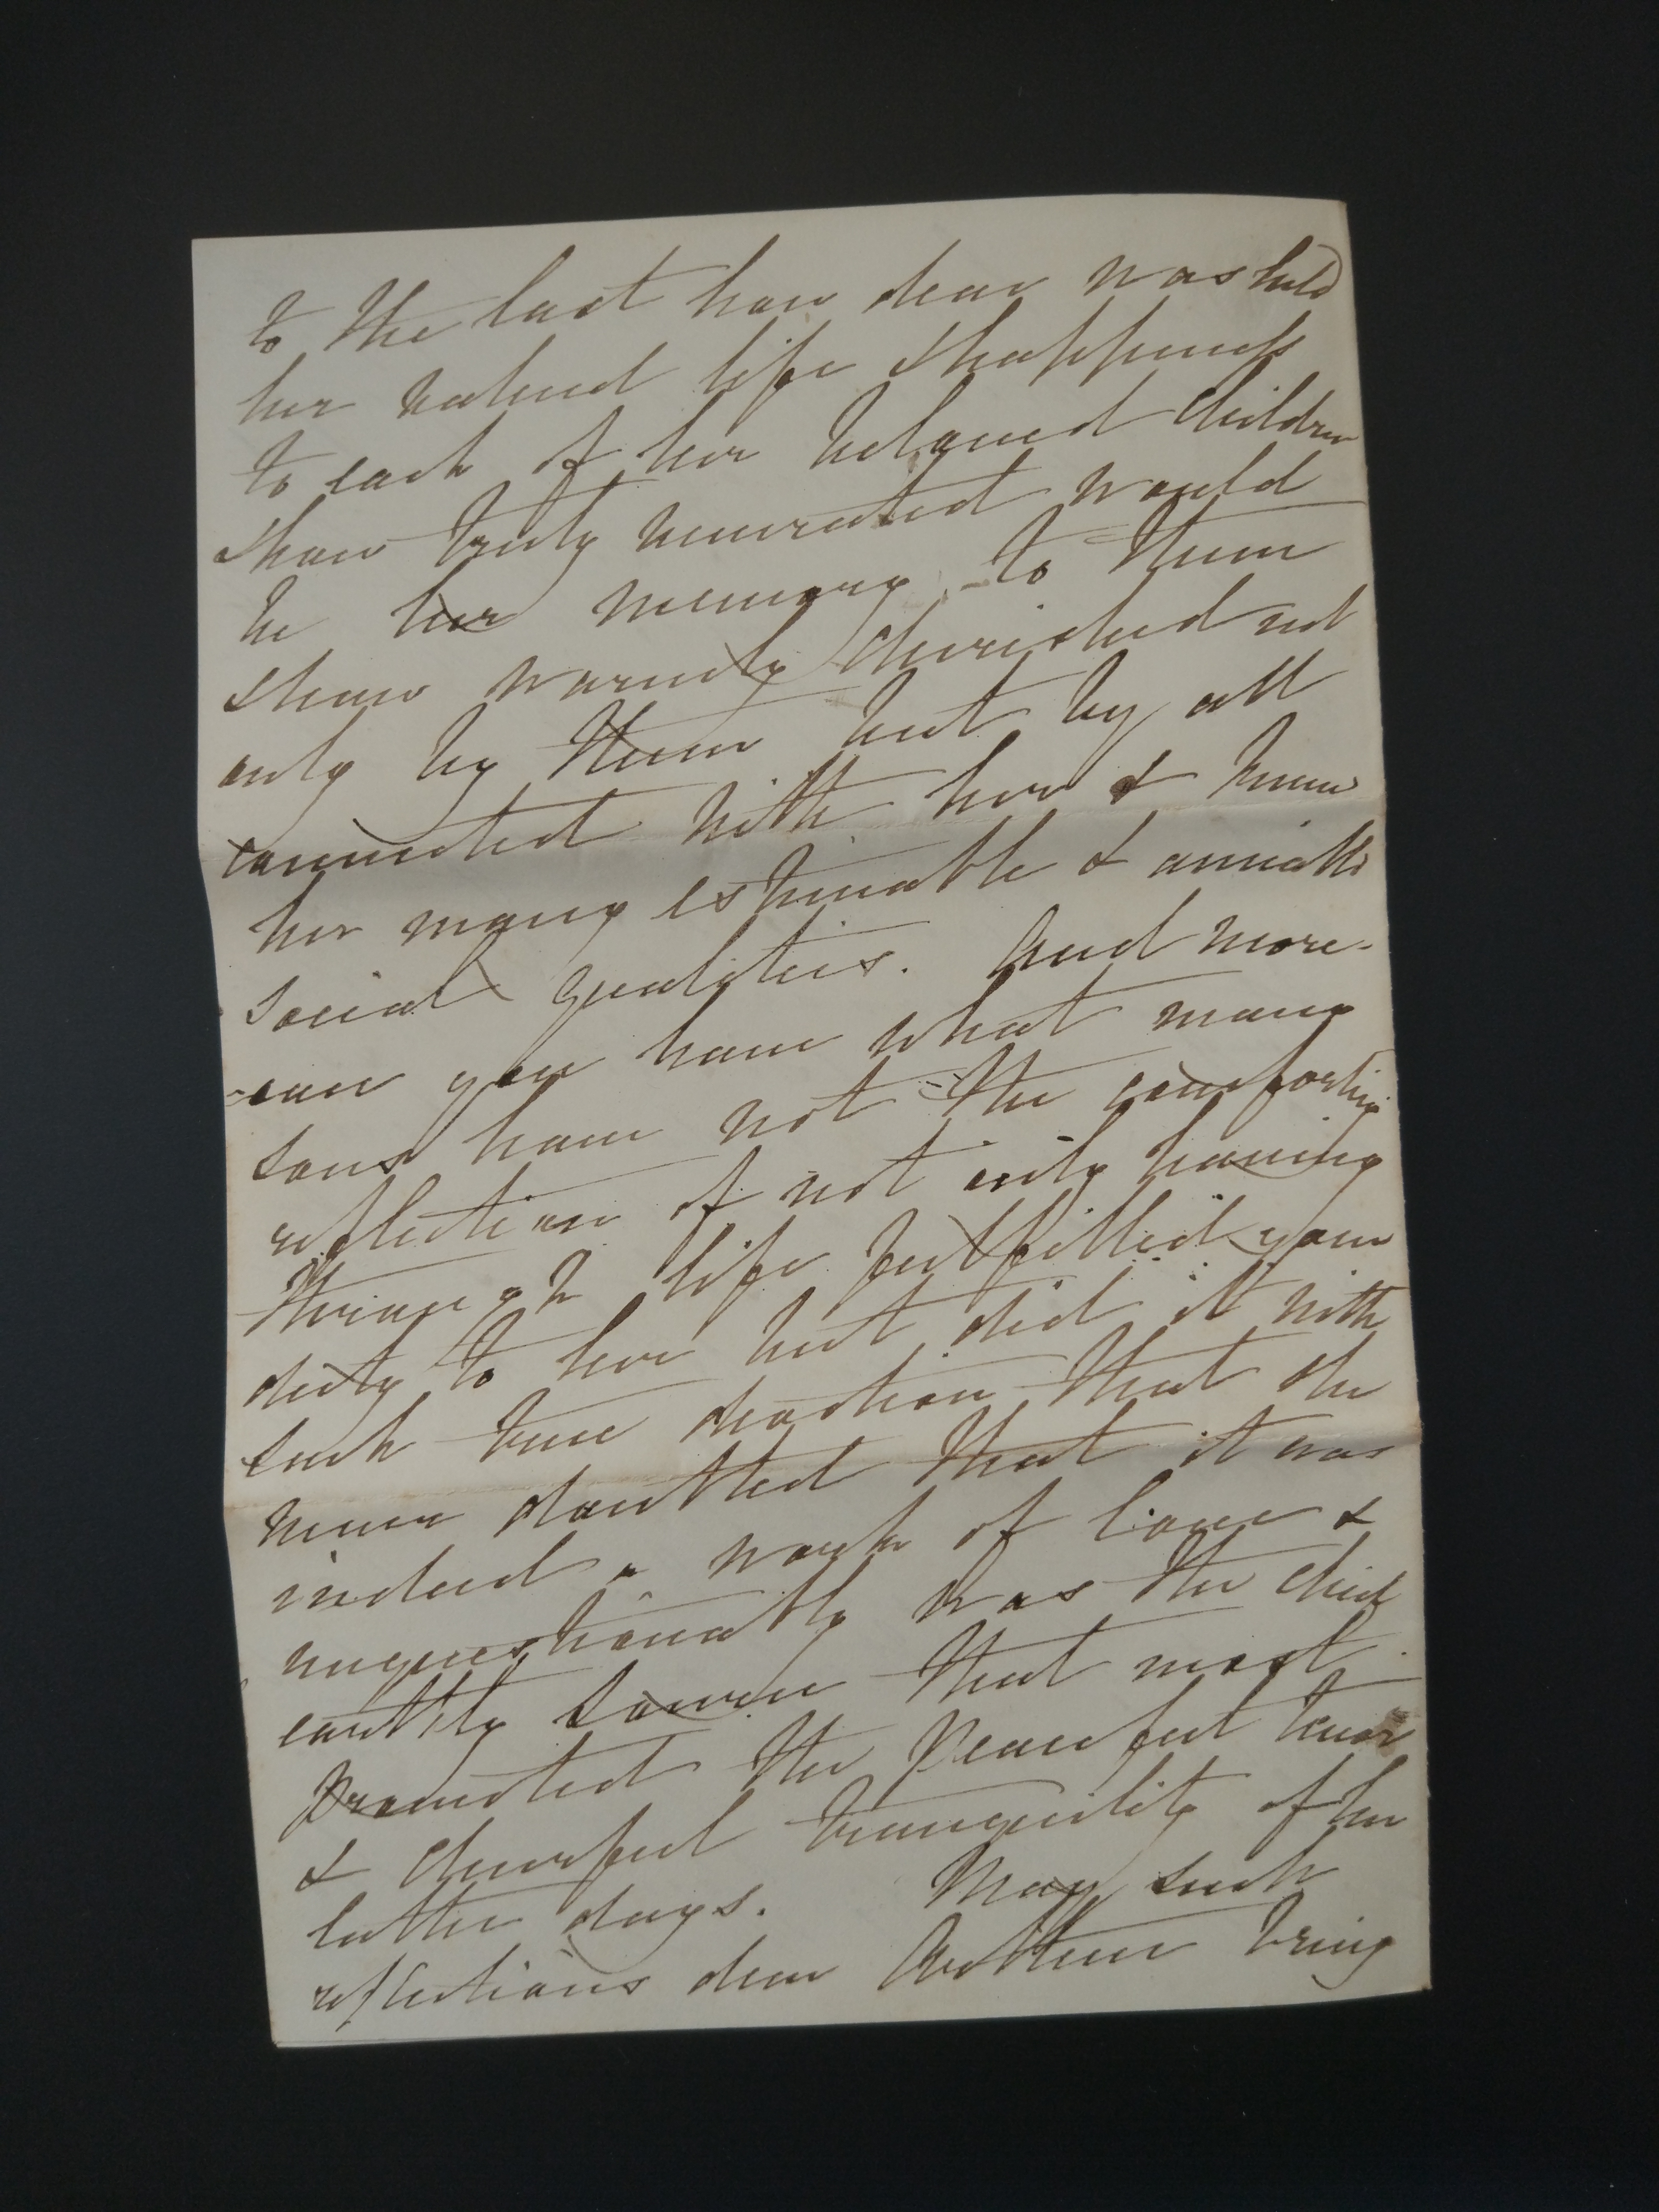 to the last how dear was held
her valued life & happiness
to each of her beloved Children
& how truly venerated would
be her memory to them
& how warmly cherished not
only by them but by all
connected with her & knew
her many estimable & amiable
social qualities. And more-
-over you have what many
sons have not - the comforting
reflection of not only having
through life fulfilled your
duty to her but did it with
such true devotion that she
never doubted that it was
indeed a work of love &
unquestionably was the chief
earthly source that most
promoted the peaceful tenor
& cheerful tranquility of her
latter days. May such
reflections dear Brother bring